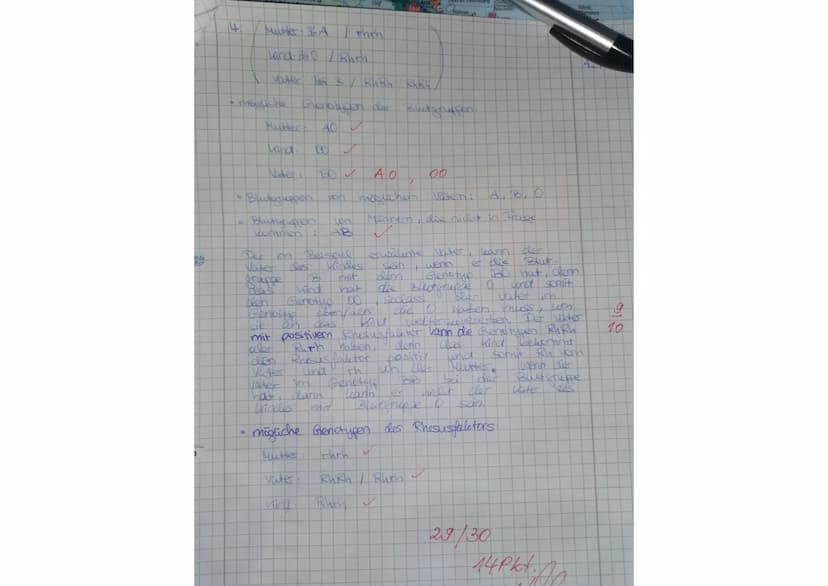 4. Mutter: A / rhrh
Kind: 0 / Rhrh
Vater B / RhRh / Rhrh
• mögliche Genotypen der Blutgruppen
Mutter: A0 ✓
Kind: 00 ✓
Vater: B0 ✓ A0, 00
• Blutgruppen von möglichen Vätern: A, B, 0
• Blutgruppen von Männern, die nicht in Frage
kommen: AB ✓
Der im Beispiel erwähnte Vater, kann der
Vater des Kindes sein, wenn er die Blut-
gruppe B mit dem Genotyp B0 hat, denn
das Kind hat die Blutgruppe 0 und somit
den Genotyp 00, sodass der Vater im
Genotyp ebenfalls die 0 haben muss, um
sie an das Kind weiterzuvererben. Der Vater
mit positivem Rhesusfaktor kann die Genotypen RhRh
oder Rhrh haben, denn das Kind bekommt
den Rhesusfaktor positiv und somit Rh vom
Vater und rh von der Mutter. Wenn der
Vater im Genotyp BB bei der Blutgruppe
hat, dann kann er nicht der Vater des
Kindes mit Blutgruppe 0 sein.
9
10
• mögliche Genotypen des Rhesusfaktors
Mutter: rhrh ✓
Vater: RhRh / Rhrh ✓
Kind: Rhrh ✓
29/30
14 Pkt.